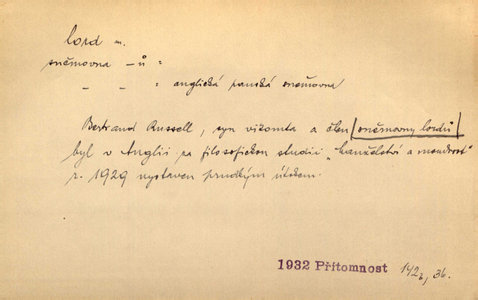 lord m.
sněmovna -ů :
- - : anglická panská sněmovna
Bertrand Russell, syn vikomta a člen [sněmovny lordů]
byl v Anglii za filosofickou studii „Manželství a mravnost"
r. 1929 vystaven prudkým útokem.
1932 Přítomnost 142, 36.